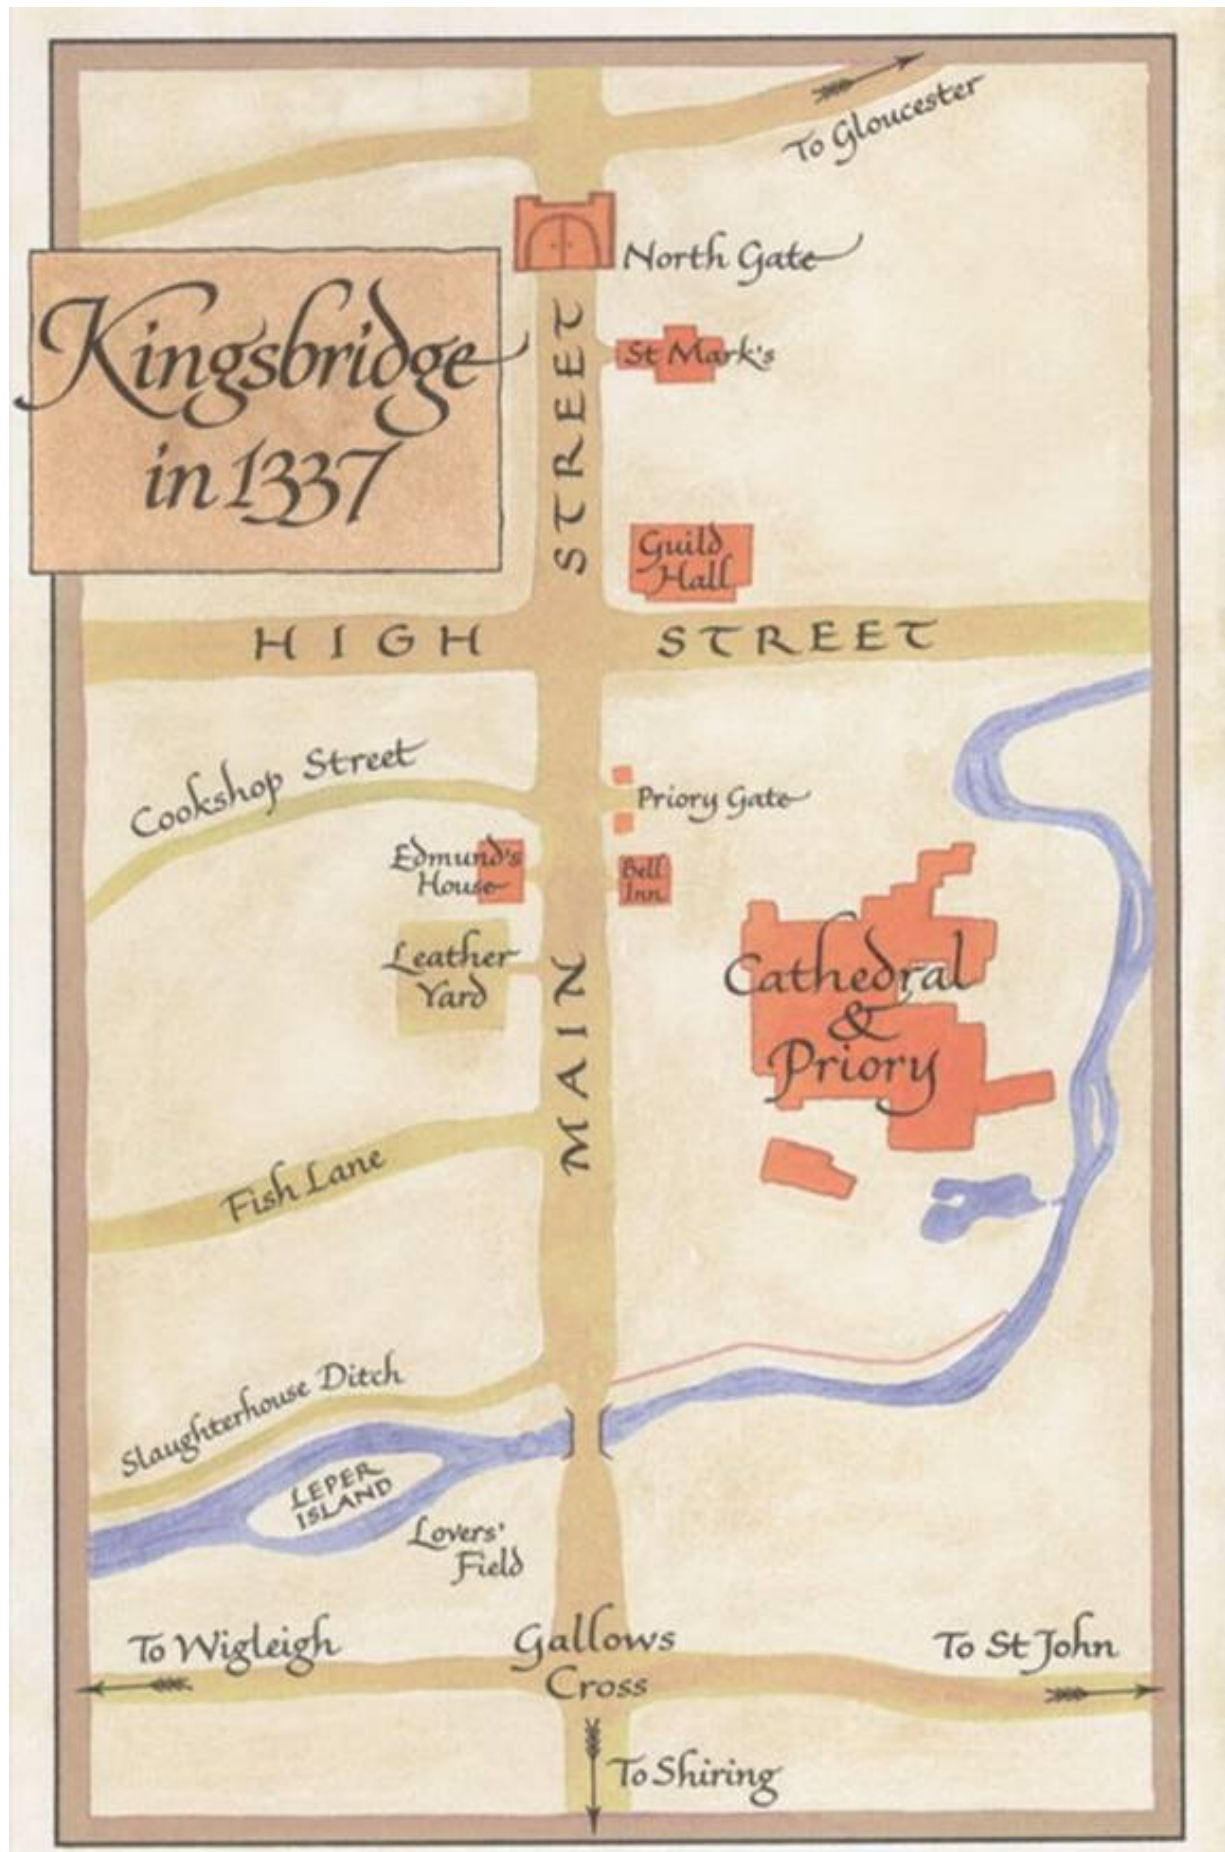 To Gloucester
North Gate
Kingsbridge
in 1337
St Mark's
STREET
Guild
Hall
HIGH STREET
Cookshop Street
Priory Gate
Edmund's
House
Bell
Inn
Leather
Yard
Cathedral
&
Priory
MAIN
Fish Lane
Slaughterhouse Ditch
LEPER
ISLAND
Lovers'
Field
To Wigleigh
Gallows
Cross
To St John
To Shiring